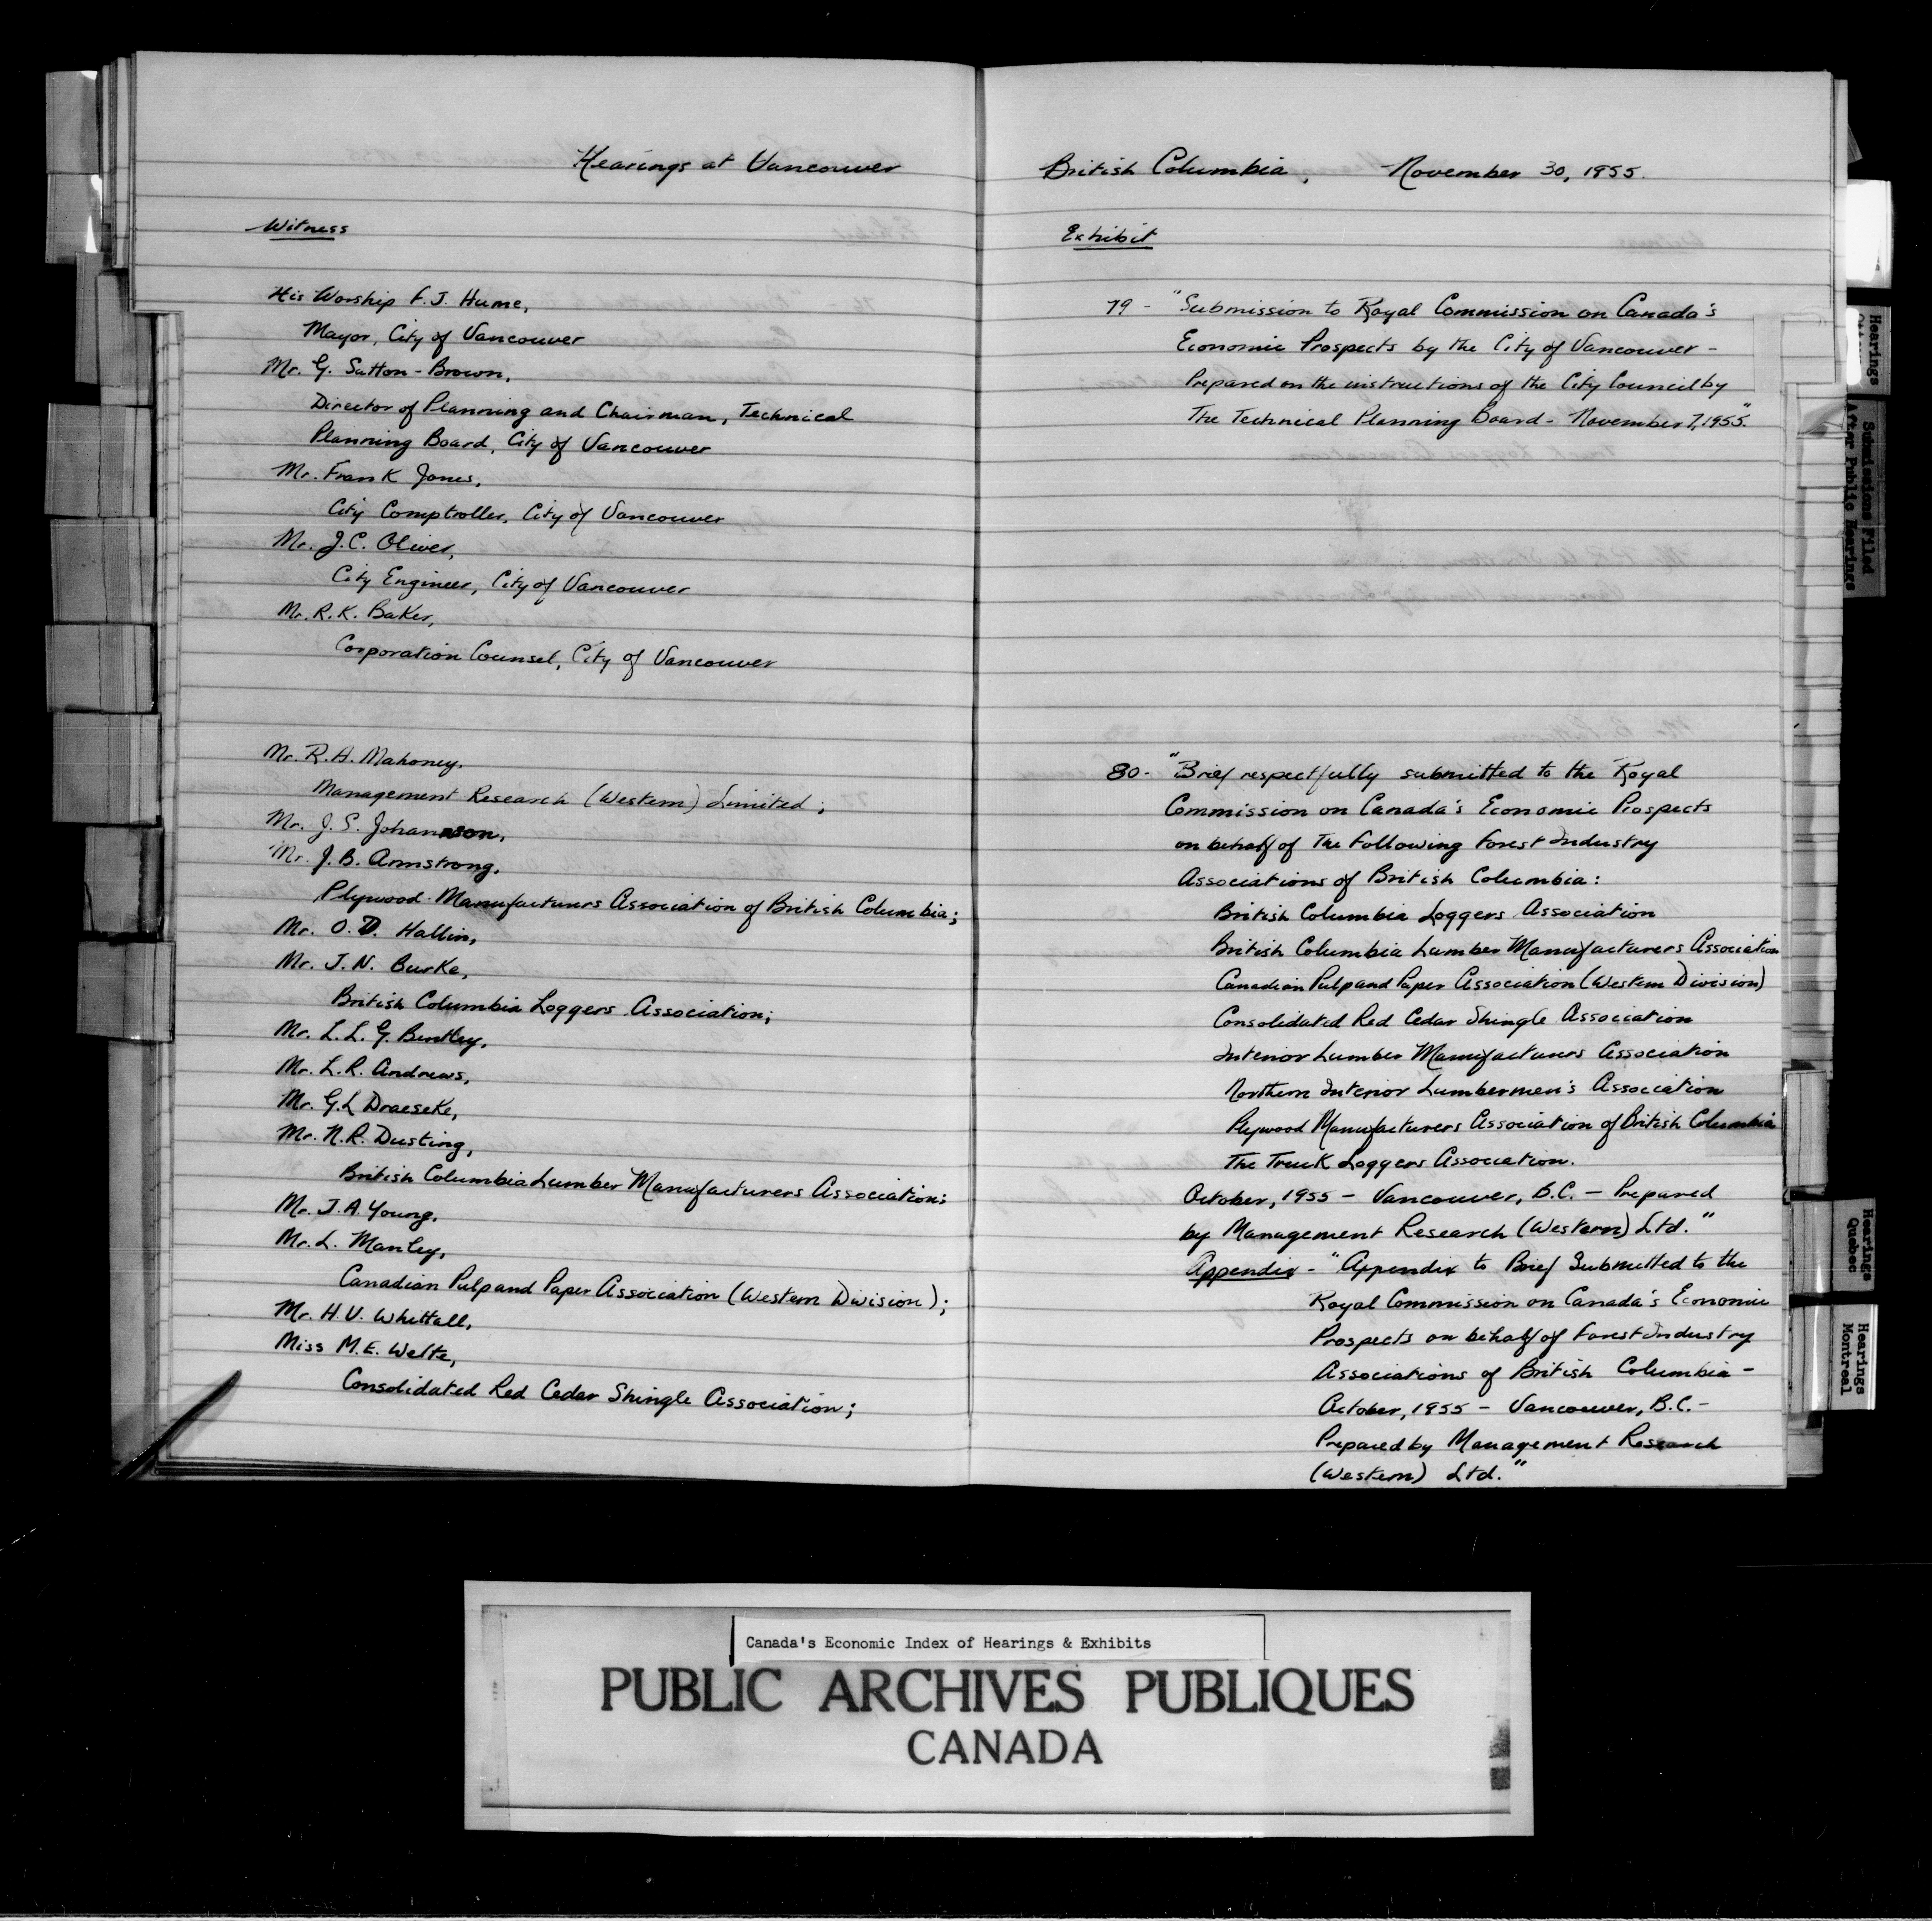 Hearings at Vancouver
Witness
His Worship F. J. Hume,
Mayor, City of Vancouver
Mr. G. Sutton-Brown,
Director of Planning and Chairman, Technical
Planning Board, City of Vancouver
Mr. Frank Jones,
City Comptroller, City of Vancouver
Mr. J.C. Oliver,
City Engineer, City of Vancouver
Mr. R.K. Baker,
Corporation Counsel, City of Vancouver
Mr. R.A. Mahoney,
Management Research (Western) Limited;
Mr. J. S. Johannson,
Mr. J.B. Armstrong,
Plywood Manufacturers Association of British Columbia;
Mr. O. D. Hallin,
Mr. J. N. Burke,
British Columbia Loggers Association;
Mr. L. L. G. Bentley,
Mr. L.R. Andrews,
Mr. G.L Draeseke,
Mr. N.R. Dusting,
British Columbia Lumber Manufacturers Association;
Mr. J.A. Young,
Mr. L. Manley,
Canadian Pulp and Paper Association (Western Division);
Mr. H.V. Whittall,
Miss M.E. Welte,
Consolidated Red Cedar Shingle Association;
British Columbia, November 30, 1955.
Exhibit
79 - "Submission to Royal Commission on Canada's
Economic Prospects by the City of Vancouver -
Prepared on the instructions of the City Council by
The Technical Planning Board - November 7, 1955."
80 - "Brief respectfully submitted to the Royal
Commission on Canada's Economic Prospects
on behalf of The Following Forest Industry
Associations of British Columbia:
British Columbia Loggers Association
British Columbia Lumber Manufacturers Association
Canadian Pulp and Paper Association (Western Division)
Consolidated Red Cedar Shingle Association
Interior Lumber Manufacturers Association
Northern Interior Lumbermen's Association
Plywood Manufacturers Association of British Columbia
The Truck Loggers Association.
October, 1955 - Vancouver, B.C. - Prepared
by Management Research (Western) Ltd."
Appendix - "Appendix to Brief Submitted to the
Royal Commission on Canada's Economic
Prospects on behalf of Forest Industry
Associations of British Columbia -
October, 1955 - Vancouver, B.C. -
Prepared by Management Research
(Western) Ltd."
Hearings
Submissions Filed
After Public Hearings
Hearings
Quebec
Hearings
Montreal
Canada's Economic Index of Hearings & Exhibits
PUBLIC ARCHIVES PUBLIQUES
CANADA